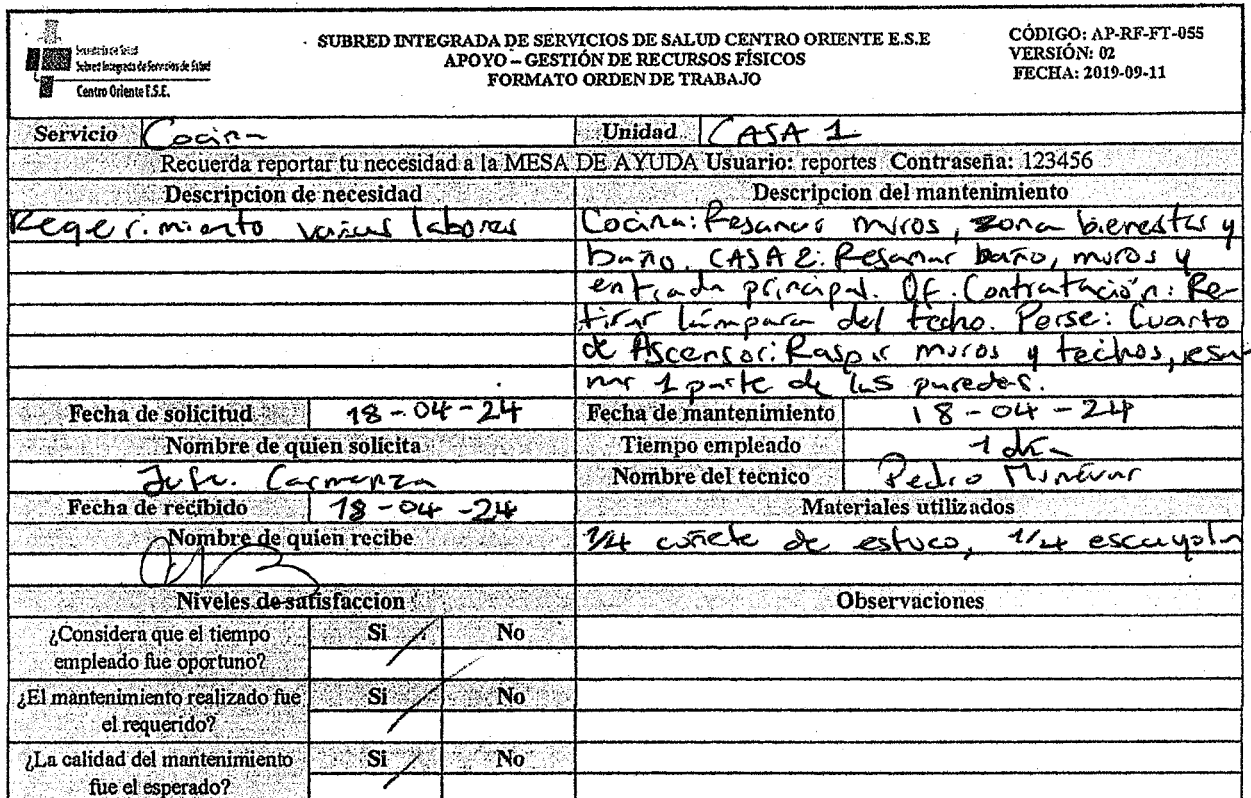 Secretaría de Salud
Subred Integrada de Servicios de Salud
Centro Oriente E.S.E.
SUBRED INTEGRADA DE SERVICIOS DE SALUD CENTRO ORIENTE E.S.E
APOYO – GESTIÓN DE RECURSOS FÍSICOS
FORMATO ORDEN DE TRABAJO
CÓDIGO: AP-RF-FT-055
VERSIÓN: 02
FECHA: 2019-09-11
Servicio Cocina Unidad CASA 1
Recuerda reportar tu necesidad a la MESA DE AYUDA Usuario: reportes Contraseña: 123456
Descripcion de necesidad
Requerimiento varias labores
Descripcion del mantenimiento
Cocina: Resanar muros, zona bienestar y
baño. CASA 2: Resanar baño, muros y
entrada principal. Of. Contratación: Re-
tirar lámpara del techo. Perse: Cuarto
de Ascensor: Raspar muros y techos, resa
nar 1 parte de las paredes.
Fecha de solicitud 18-04-24 Fecha de mantenimiento 18-04-24
Nombre de quien solicita Tiempo empleado 1 día
Carmenza Nombre del tecnico Pedro
Fecha de recibido 18-04-24 Materiales utilizados
Nombre de quien recibe 1/4 cuñete de estuco, 1/4 escayola
Niveles de satisfaccion Observaciones
¿Considera que el tiempo
empleado fue oportuno?
Si No
¿El mantenimiento realizado fue
el requerido?
Si No
¿La calidad del mantenimiento
fue el esperado?
Si No